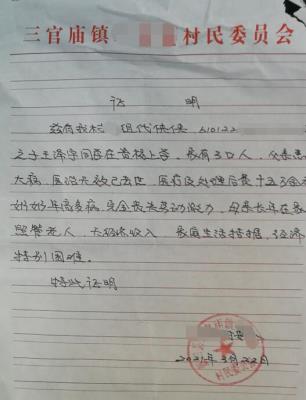 三官庙镇 村民委员会
证 明
兹有我村 组代 610122
之子王泽宇同学在贵校上学。家有3口人，父亲患
大病，医治无效已去世，医疗及处理后费十五万余元
奶奶年高多病，完全丧失劳动能力，母亲长年在家
照管老人，无经济收入，家庭生活拮据，经济
特别困难。
特此证明
2021年3月22日
村民委员会